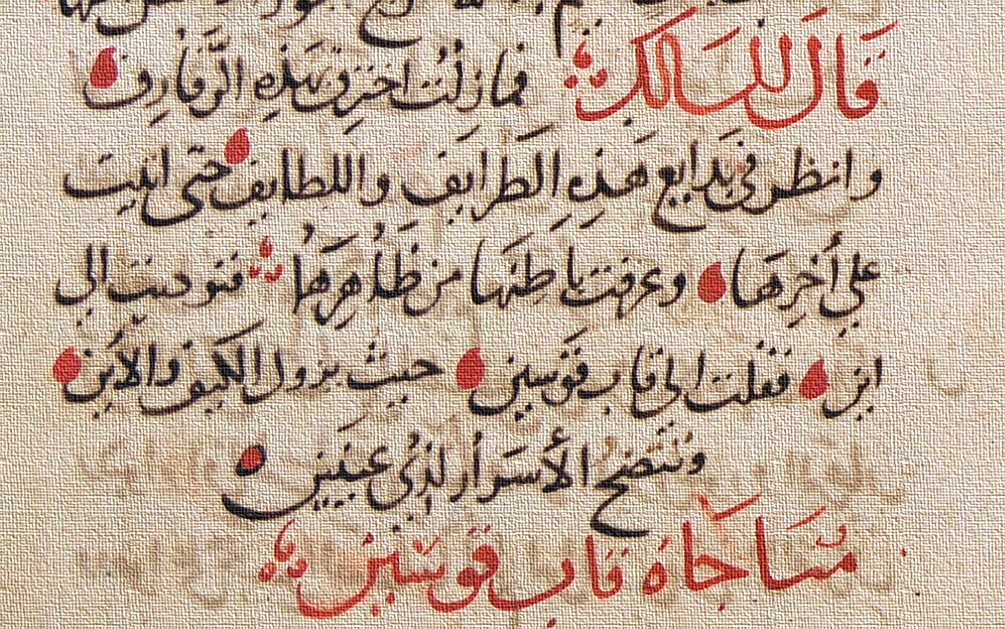 قَالَ السَالِك فما زلْتُ اخترق هَذِهِ الرَّفَارِف
وانظر في بَدايع هَذِهِ الطَرايَف واللطايف حتى اتيت
علي أُخرِهَا وعرفت بَاطِنَها من ظَاهِرِهَا فنوديت الي
اين فقلت الي قاب قَوْسين حيث يزول الكيف والاَين
وتَتضحُ الأسرَارُ لذِي عَينَين
مُنَاجَاة قَاب قوسَين